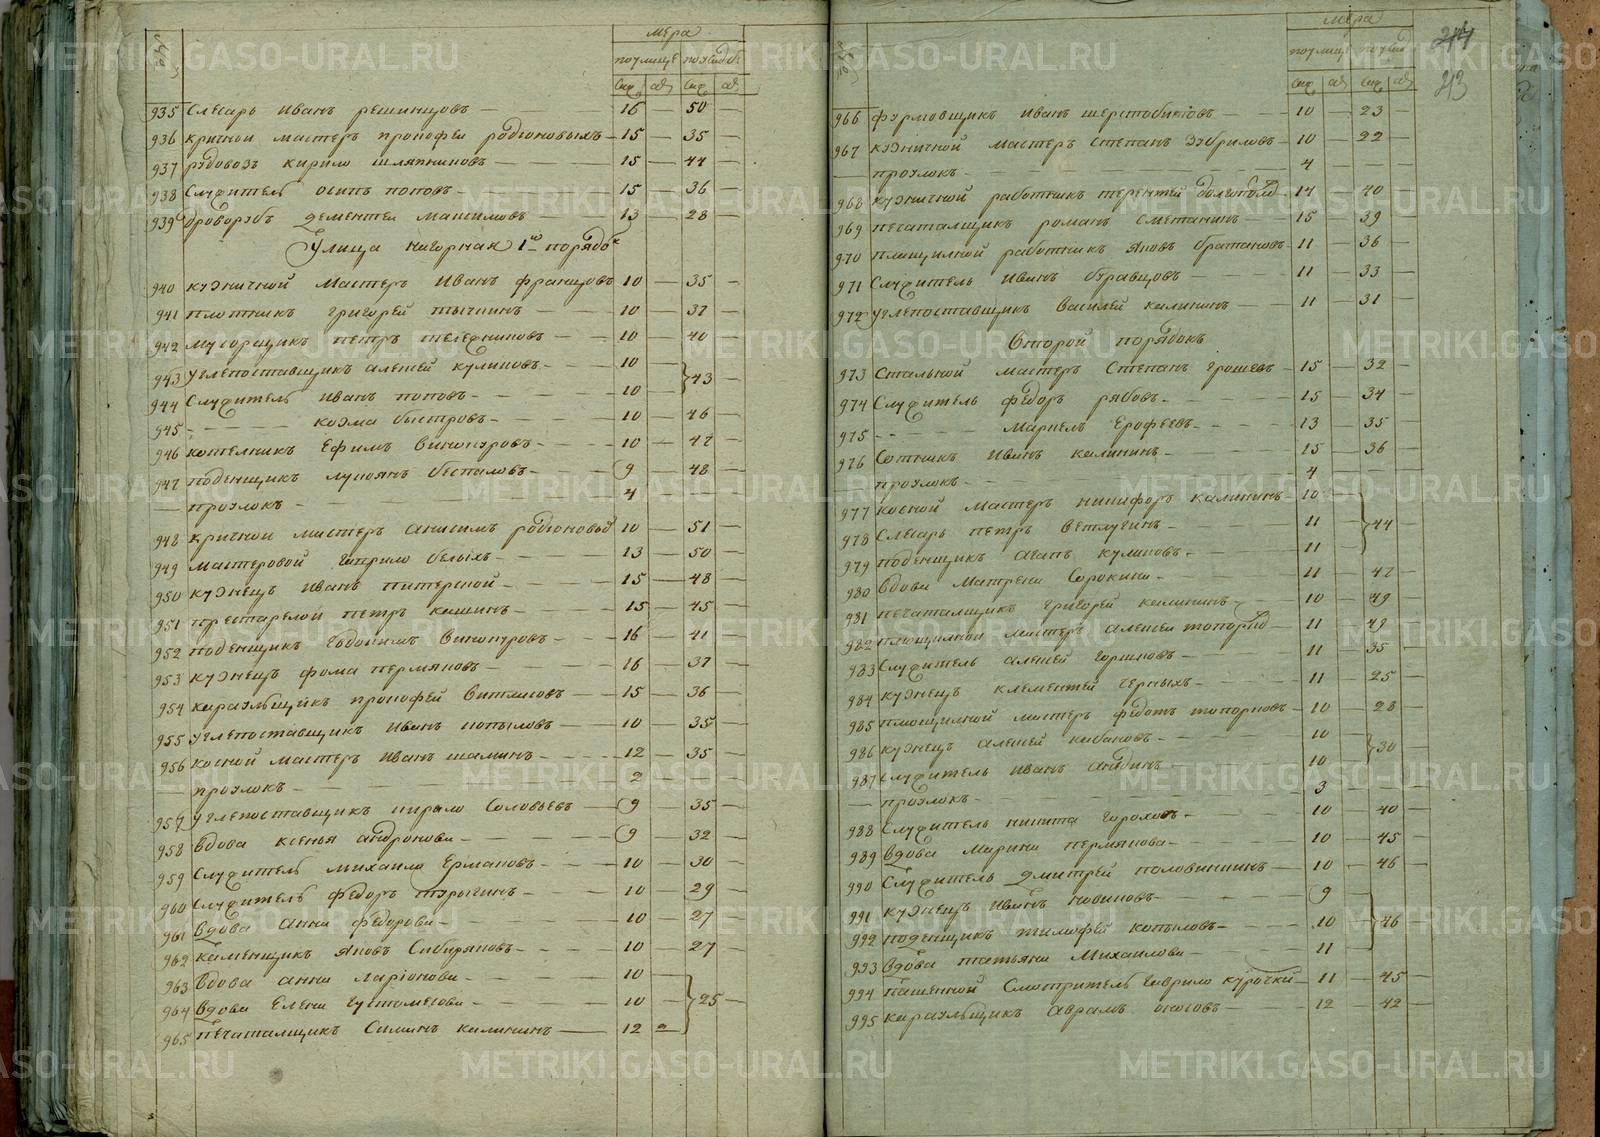 мера
по улице по усадьбе
саж. ар. саж. ар.
935 Слесарь Иванъ решинцовъ 16 50
936 кричной мастеръ прокофей родiоновыхъ 15 35
937 рудовозъ кирило шляпниковъ 15 44
938 Служитель осипъ поповъ 15 36
939 дроворубъ дементей Максимовъ 13 28
Улица нагорная 1й порядок
940 кузничной Мастеръ Иванъ французовъ 10 35
941 плотникъ григорей тычкинъ 10 37
942 мусорщикъ петръ тележниковъ 10 40
943 углепоставщикъ алексей куликовъ 10
43
944 Служитель Иванъ поповъ 10
945 козма быстровъ 10 46
946 котельникъ Ефимъ Винокуровъ 10 47
947 поденщикъ лукоянъ беспаловъ 9 48
проулокъ 4
948 кричной мастеръ анисимъ родiоновых 10 51
949 мастеровой гаврило белыхъ 13 50
950 кузнецъ Иванъ питерской 15 48
951 престарелой петръ кашинъ 15 45
952 поденщикъ Евдокимъ Винокуровъ 16 41
953 кузнецъ фома пермяковъ 16 37
954 караульщикъ прокофей 15 36
955 углепоставщикъ Иванъ копыловъ 10 35
956 косной мастеръ Иванъ шалинъ 12 35
проулокъ 2
957 углепоставщикъ кирило Соловьевъ 9 35
958 вдова ксенья андронова 9 32
959 Служитель михаило Ермаковъ 10 30
960 Служитель федоръ турыгинъ 10 29
961 вдова анна федорова 10 27
962 каменщикъ яковъ Сибиряковъ 10 27
963 вдова анна ларiонова 10
964 вдова Елена Густомесова 10 25
965 печатальщикъ Симанъ калининъ 12
мера
по улице по усад
саж. ар. саж. ар.
244
213
966 формовщикъ иванъ шерстобитовъ 10 23
967 кузничной мастеръ Степанъ Зубриловъ 10 22
проулокъ 4
968 кузничной работникъ терентей долгополов 14 40
969 печатальщикъ романъ Сметанинъ 15 39
970 плащильной работникъ яковъ братаковъ 11 36
971 Служитель Иванъ буравцовъ 11 33
972 углепоставщикъ василей калининъ 11 31
Второй порядокъ
973 Стальной мастеръ Степанъ грошевъ 15 32
974 Служитель федоръ рябовъ 15 34
975 Маркелъ Ерофеевъ 13 35
976 Сотникъ Иванъ калининъ 15 36
проулокъ 4
977 косной мастеръ никифоръ калининъ 10
978 Слесарь петръ Ветлугинъ 11 44
979 поденщикъ агапъ куликовъ 11
980 вдова Матрена Сорокина 11 47
981 печатальщикъ григорей калининъ 10 49
982 плющилной мастеръ алексей топорков 11 49
983 Служитель алексей горшковъ 11 35
984 кузнецъ клементей черныхъ 11 25
985 плющилной мастеръ федотъ топорковъ 10 28
986 кузнецъ алексей кабаковъ 10
30
987 Служитель иванъ 10
проулокъ 3
988 Служитель никита гороховъ 10 40
989 вдова марина пермякова 10 45
990 Служитель дмитрей половинкинъ 10 46
991 кузнецъ Иванъ новиковъ 9
992 поденщикъ тимофей копыловъ 10 46
993 вдова татьяна Михаилова 11
994 пашенной Смотритель гаврило курочки 11 45
995 караульщикъ аврамъ 12 42